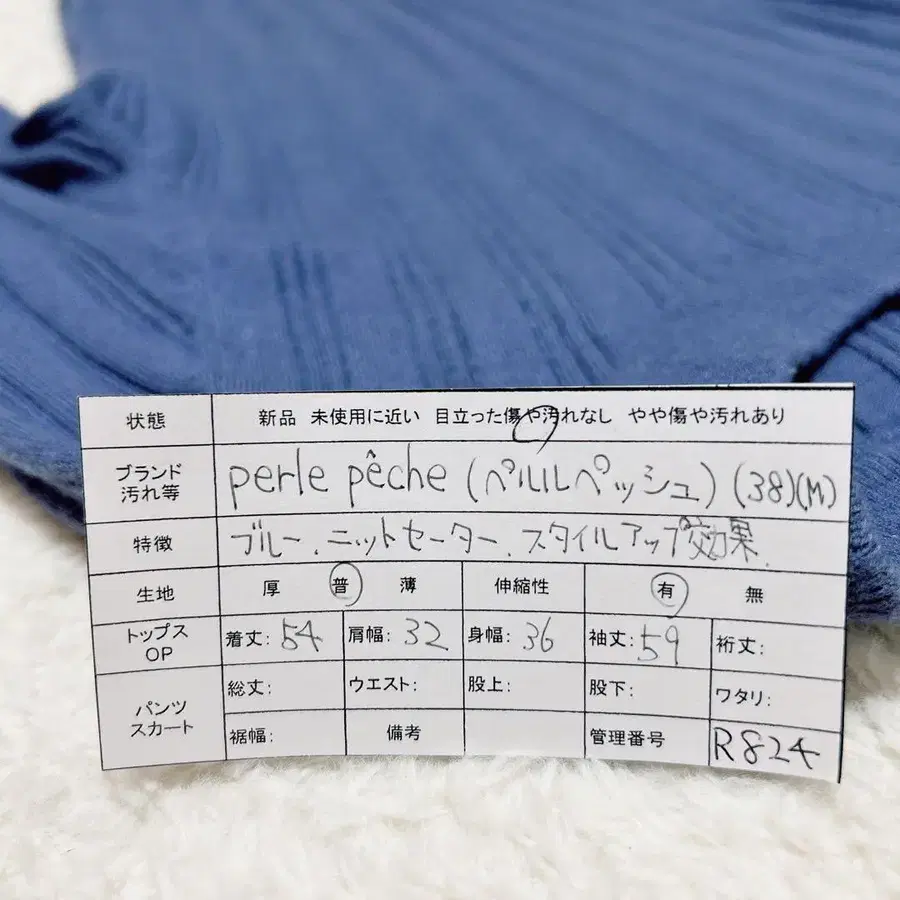 状態 新品 未使用に近い 目立った傷や汚れなし やや傷や汚れあり
ブランド 汚れ等 perle pêche (ペルルペッシュ) (38)(M)
特徴 ブルー、ニットセーター、スタイルアップ効果、
生地 厚 普 薄 伸縮性 有 無
トップス OP 着丈:54 肩幅:32 身幅:36 袖丈:59 裄丈:
パンツ スカート 総丈: ウエスト: 股上: 股下: ワタリ:
裾幅: 備考 管理番号 R824